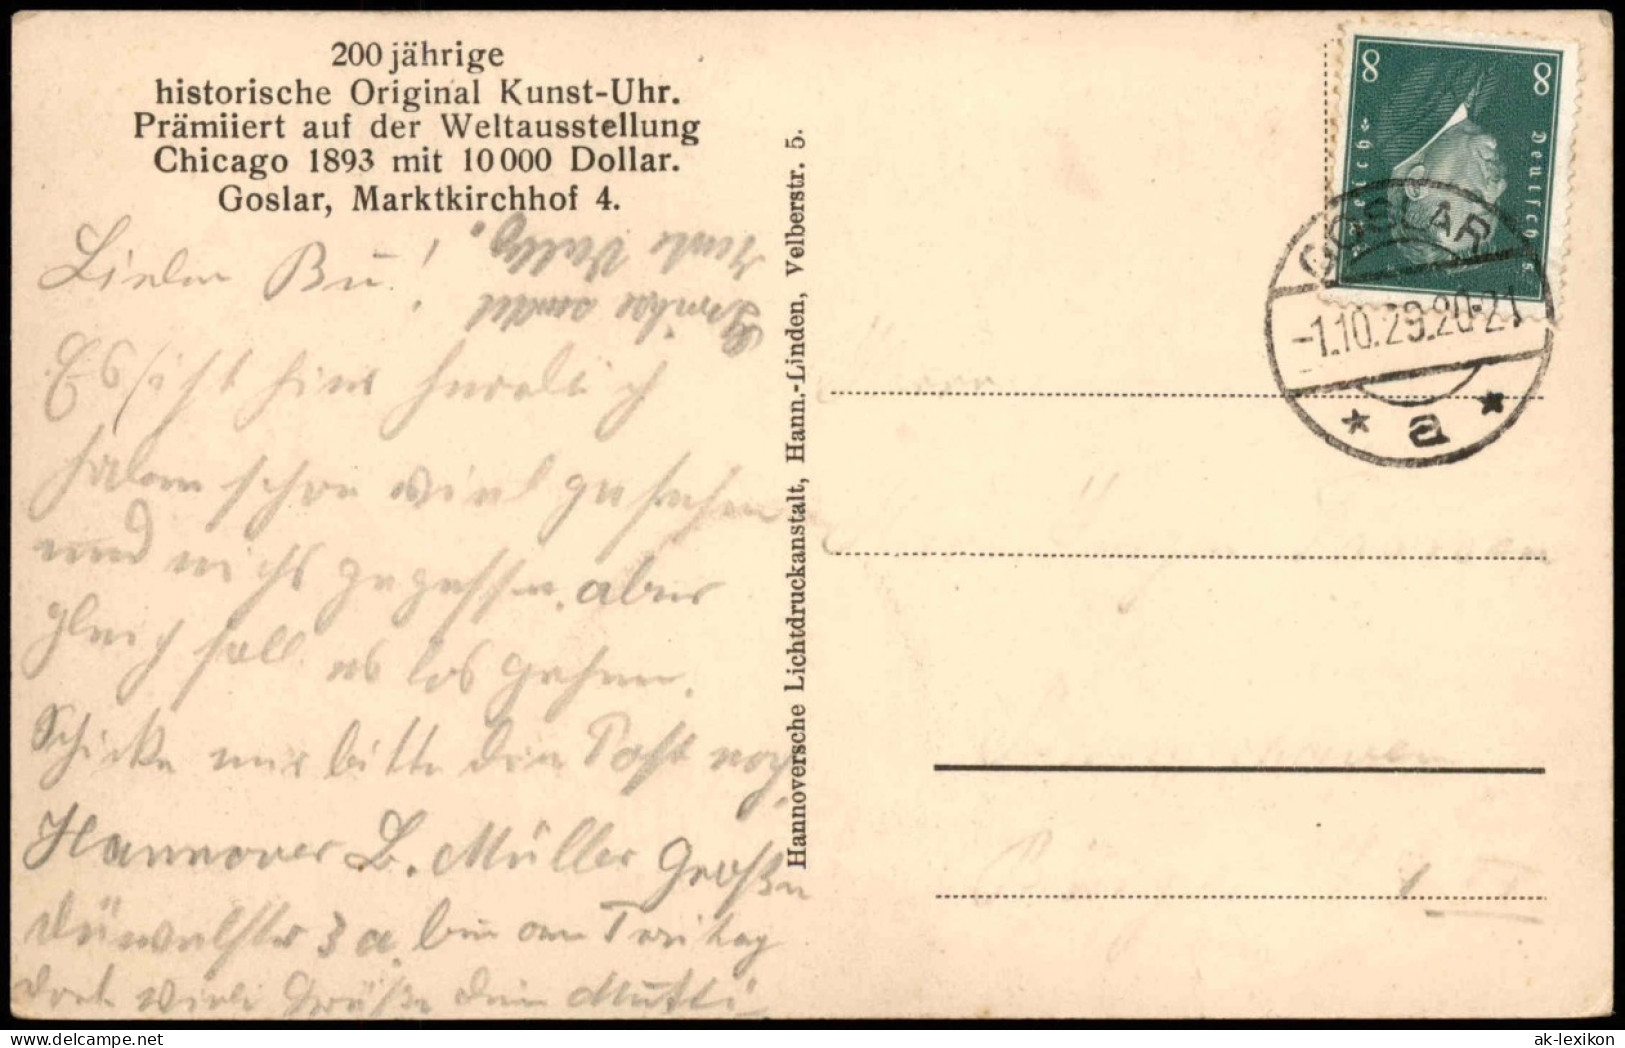 200 jährige
historische Original Kunst-Uhr.
Prämiiert auf der Weltausstellung
Chicago 1893 mit 10 000 Dollar.
Goslar, Marktkirchhof 4.
Lieber Bu!
Grüße sendet
Tante
Es ist hier herrlich
haben schon viel gesehen
und nichts gegessen, aber
gleich soll es los gehen.
Schicke mir bitte die Post nach
Hannover B. Müller Große
Düwelstr 3 a. bin am Freitag
dort viele Grüße dein Mutti
Hannoversche Lichtdruckanstalt, Hann.-Linden, Velberstr. 5.
8 8
Deutsches Reich
GOSLAR
-1.10.29.20-21
* a *
ak-lexikon